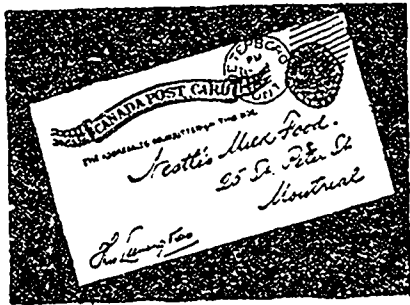 CANADA POST CARD
PETERBORO
PM
ONT
THE ADDRESS TO BE WRITTEN ON THIS SIDE
Nestlé's Milk Food.
25 St. Peter St
Montreal